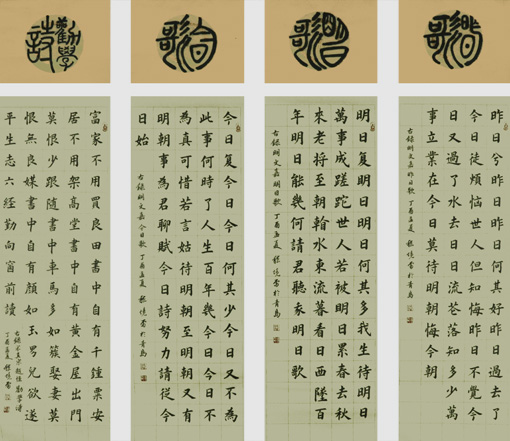 昨日歌
昨日兮昨日昨日何其好昨日過去了
今日徒煩惱世人但知悔昨日不覺今
日又過了水去日日流花落知多少萬
事立業在今日莫待明朝悔今朝
古錄明文嘉昨日歌 丁酉孟夏 於青島
明日歌
明日复明日明日何其多我生待明日
萬事成蹉跎世人若被明日累春去秋
來老將至朝看水東流暮看日西墜百
年明日能幾何請君聽我明日歌
古錄明文嘉明日歌 丁酉孟夏 於青島
今日歌
今日复今日今日何其少今日又不為
此事何時了人生百年幾今日今日不
為真可惜若言姑待明朝至明朝又有
明朝事為君聊賦今日詩努力請從今
日始
古錄明文嘉今日歌 丁酉孟夏 於青島
勸學詩
富家不用買良田書中自有千鍾粟安
居不用架高堂書中自有黃金屋出門
莫恨少跟隨書中車馬多如簇娶妻莫
恨無良媒書中自有顏如玉男兒欲遂
平生志六經勤向窗前讀
古錄宋真宗趙恒勸學詩
丁酉孟夏